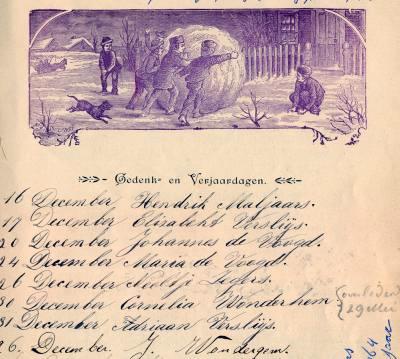 Gedenk- en Verjaardagen.
16 December, Hendrik Maljaars.
17 December Elizabeht Versluijs.
20 December Johannes de Voogd.
24 December Maria de Voogd.
26 December Neeltje
30 December Cornelia Wonderhem
31 December, Adriaan Versluijs.
26. December. J. Wondergem.